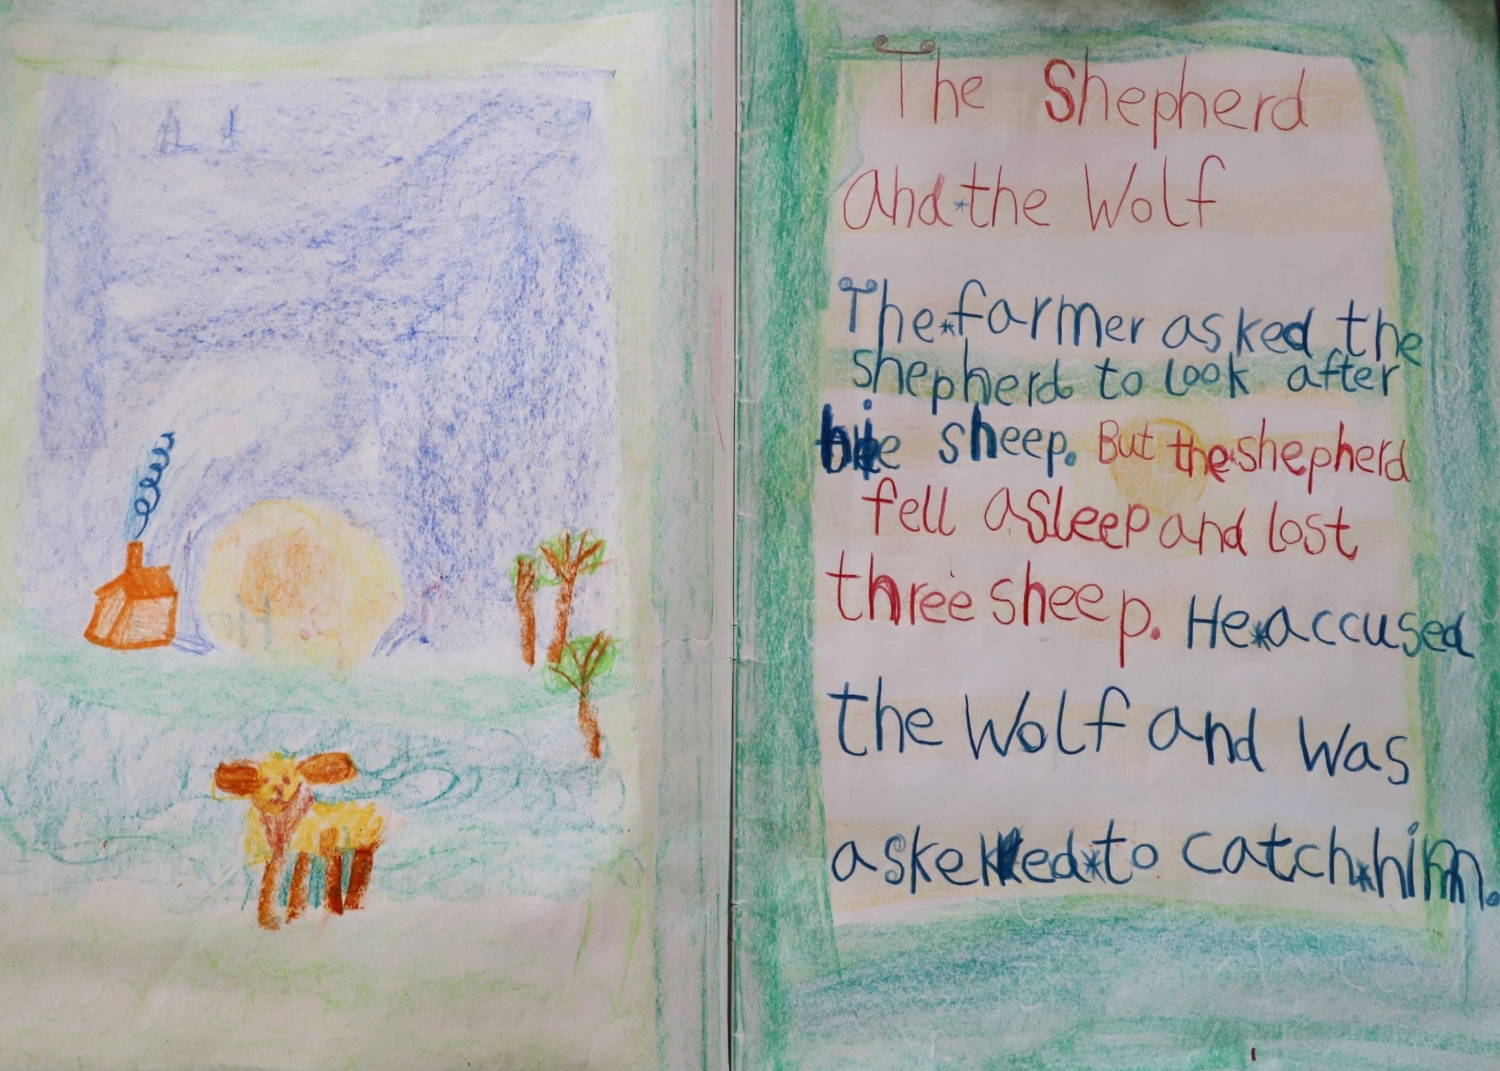 The Shepherd
and*the Wolf
The*farmer asked the
shepherd to look after
sheep. But the*shepherd
fell asleep and lost
three sheep. He*accused
the Wolf and was
asked*to catch*him.